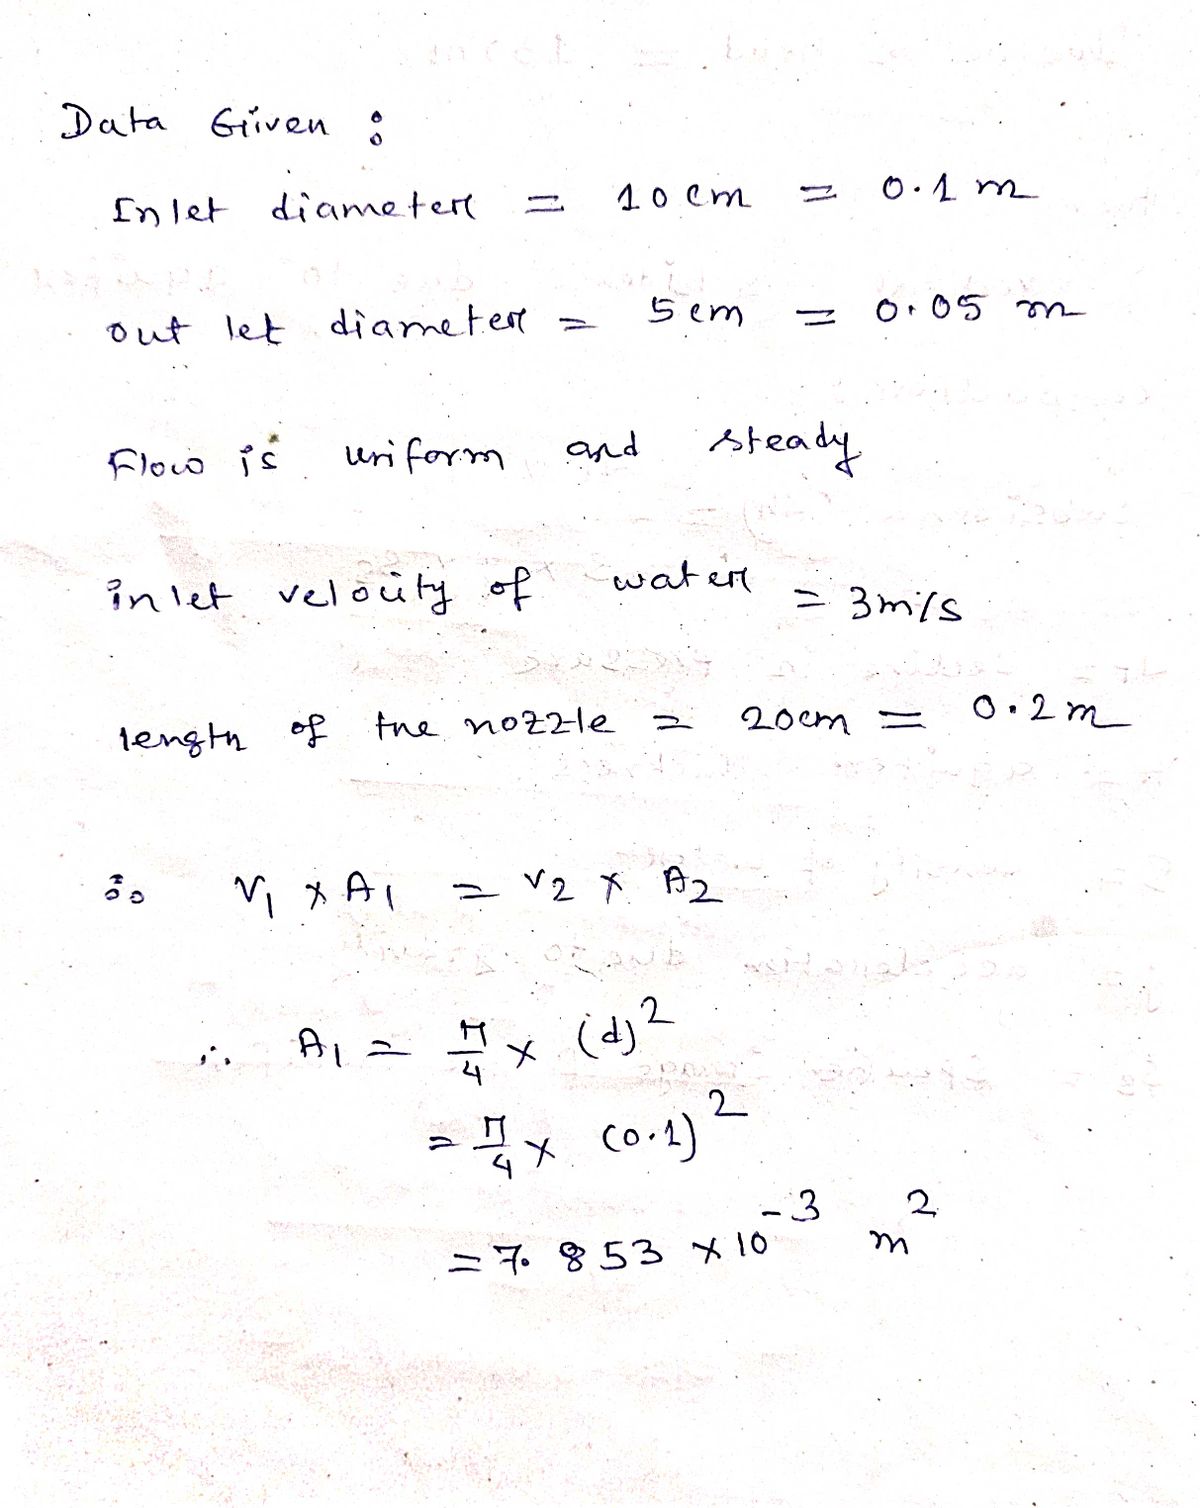 Data Given :
Inlet diameter = 10 cm = 0.1 m
out let diameter = 5 cm = 0.05 m
Flow is uniform and steady
inlet velocity of water = 3 m/s
length of the nozzle = 20cm = 0.2 m
So V₁ × A₁ = V₂ × A₂
∴ A₁ = π/4 × (d)²
= π/4 × (0.1)²
= 7.853 × 10⁻³ m²